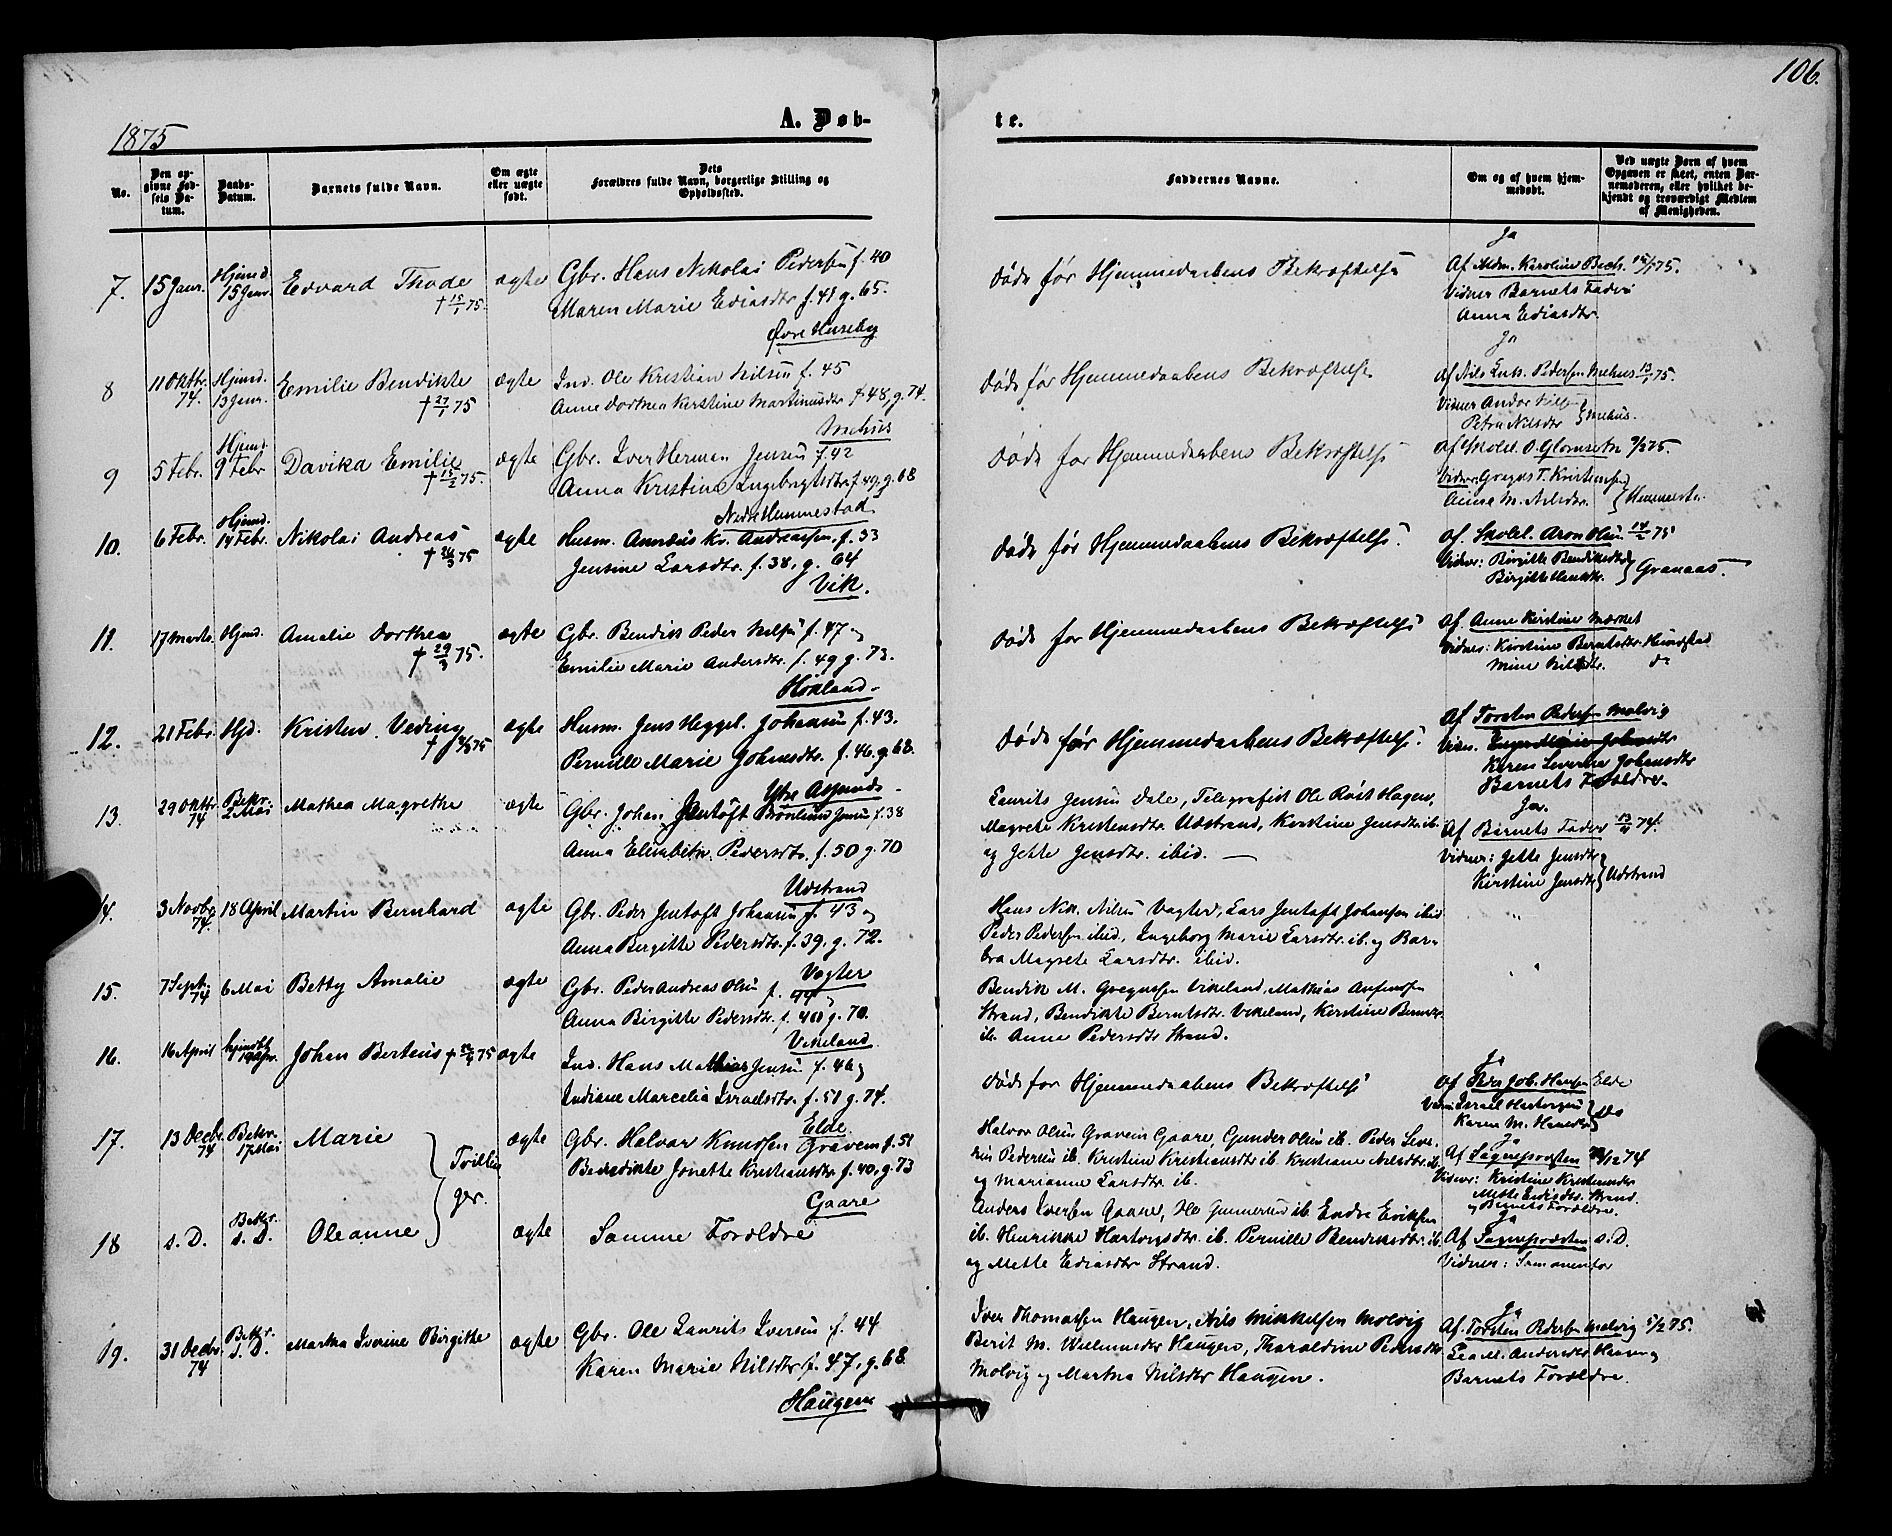 106.
1875
A. Døb-
te.
No.
Den op-
givne Fød-
sels Da-
tum.
Daabs-
Datum.
Barnets fulde Navn.
Om ægte
eller uægte
født.
Dets
Forældres fulde Navn, borgerlige Stilling og
Opholdssted.
Faddernes Navne.
Om og af hvem hjem-
medøbt.
Ved uægte Børn af hvem
Opgaven er skeet, enten Bar-
nemoderen, eller hvilket be-
kjendt og troværdigt Medlem
af Menigheden.
7. 15 Janr. Hjemd. 15 Janr. Edvard Thode † 15/1 75. ægte
Gbr. Hans Nikolai Pedersen f. 40
Maren Marie Ediasdtr f. 41 g. 65.
Øvre Huseby
Døde før Hjemmedaabens Bekræftelse
Ja
Af Mdm. Karoline Bech. 15/1 75.
Vidner Barnets Fader
Anna Ediasdtr.
8 11 Oktbr. 74. Hjemd. 13 Janr. Emilie Bendikte † 27/1 75 ægte
Ind. Ole Kristian Nilsen f. 45
Anne Dorthea Kerstine Martinusdtr f. 48, g. 74.
Mehus
Døde før Hjemmedaabens Bekræftelse
Ja
Af Nils Pedersen Mehus 13/1 75.
Vidner
Petra Nilsdtr } Mehus.
9 5 Febr. Hjemd. 9 Febr Davika Emilie † 15/2 75. ægte
Gbr. Iver Herman Jensen f. 42
Anna Kristine Ingebrigtsdtr f. 49, g. 68
Nedre Hemmestad
Døde før Hjemmedaabens Bekræftelse
Af Skolel. O. Glomseth 9/2 75.
Vidner: Gregus T. Kristensen
Anna M. Nilsdtr. }
10. 6 Febr. Hjemd. 14 Febr. Nikolai Andreas † 26/3 75 ægte
Husm. Annæus Kr. Andreassen, f. 33
Jensine Larsdtr. f. 38, g. 64
Vik.
Døde før Hjemmedaabens Bekræftelse.
Af. Skolel. Aron Olsen 14/2 75
Vidner: Birgitte Bendiksdtr
Birgitte } Granaas.
11. 17 Marts. Hjemd. Amalie Dorthea † 29/3 75. ægte
Gbr. Bendik Peder Nilsen f. 47 og
Emilie Marie Andersdtr. f. 49 g. 73.
Hokland.
Døde før Hjemmedaabens Bekræftelse
Af Anne Kirstine
Vidner: Kirstine Berntsdtr. Hemdstad
Mine Nilsdtr. do
12. 21 Febr. Hjd. Kristen Veding † 75 ægte
Husm. Jens Heggel. Johansen f. 43.
Pernille Marie Johnsdtr. f. 46. g. 68.
Ytre
Døde før Hjemmedaabens Bekræftelse.
Af Torsten Pedersen Molvig
Vidn. Inger Marie
Karen Severine Johansdtr
Barnets Forældre.
13. 29 Oktbr. 74 Bekr. 2 Mai Mathea Magrethe ægte
Gbr. Johan Jentoft Brønlund Jensen f. 38
Anna Elisabeth Pedersdtr. f. 50 g. 70
Udstrand
Laurits Jensen Dale, Telegrafist Ole Røst Hagen,
Magrete Kristensdtr Udstrand, Kirstine Jensdtr ib.
og Jette Jensdtr. ibid.
Ja.
Af Barnets Fader 13/11 74.
Vidner: Jette Jensdtr og
Kirstine Jensdtr } Udstrand
14. 3 Novbr. 74. 18 April Martin Bernhard ægte
Gbr. Peder Jentoft Johansen f. 43 og
Anna Birgitte Pedersdtr. f. 39, g. 72.
Vagter
Hans Nik. Nilsen Vagter, Lars Jentoft Johansen ibid
Peder Pedersen ibid, Ingeborg Marie Larsdtr. ib. og Bar-
bra Magrete Larsdtr. ibid.
15. 7 Sept. 74 6 Mai Betty Amalie ægte
Gbr. Peder Andreas Olsen f. 44 og
Anna Birgitte Pedersdtr. f. 40 g. 70.
Vikeland
Bendik M. Gregussen Vikeland, Mathias
Strand, Bendikte Berntsdtr. Vikeland, Kerstine
ib. Anne Pedersdtr Strand.
16. 16 April hjemdbt 19 Apr. Johan Berteus † 75 ægte
Ind. Hans Mathias Jensen f. 46 og
Indiane Marcelia Israelsdtr. f. 51 g. 74.
Elde
Døde før Hjemmedaabens Bekræftelse
Ja
Af Peder Joh. Hansen Elde
Vidn: Israel Hartvigsen
Karen M. Hansdtr } do
17. 13 Decbr. 74 Bekr. 17 Mai Marie } Tvillin
ger. ægte
Gbr. Halvar Knudsen Gravem f. 51
Benedikte Jonette Kristiansdtr. f. 40, g. 73
Gaare
Halvor Olsen Gravem Gaare, Gunder Olsen ib. Peder Seve-
rin Pedersen ib. Kristine Kristiansdtr ib. Kristiane Nilsdtr. ib
og Marianne Larsdtr. ib.
Ja
Af Sognepræsten /12 74
Vidner: Kristine Kristiansdtr
Mette Ediasdtr. Strand.
og Barnets Forældre.
18 s. D. Bekr. s. D. Oleanne ægte
Samme Forældre
Anders Iversen Gaare, Ole Gunnersen ib. Endre Eriksen
ib. Henrikke Hartvigsdtr. ib. Pernille Bendiksdtr. ib.
og Mette Ediasdtr Strand.
Ja
Af Sognepræsten s. D.
Vidner: Som ovenfor
19. 31 Decbr 74 Bekr. s. D. Martha Iverine Birgitte ægte
Gbr. Ole Laurits Iversen f. 44
Karen Marie Nilsdtr f. 47, g. 68.
Haugen
Iver Thomassen Haugen, Nils Mikkelsen Molvig
Berit M. Haugen, Tharaldine Pedersdtr
Molvig og Martha Nilsdtr Haugen.
Ja
Af Torsten Pedersen Molvig 5/2 75.
Lea M. Andersdtr Haugen og
Barnets Forældre.